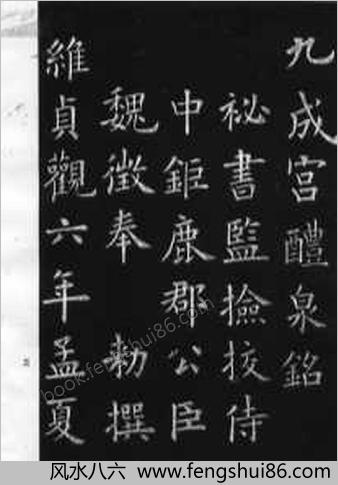 九成宮醴泉銘
祕書監撿挍侍
中鉅鹿郡公臣
魏徵奉 勅撰
維貞觀六年孟夏
book.fengshui86.com
风水八六 www.fengshui86.com